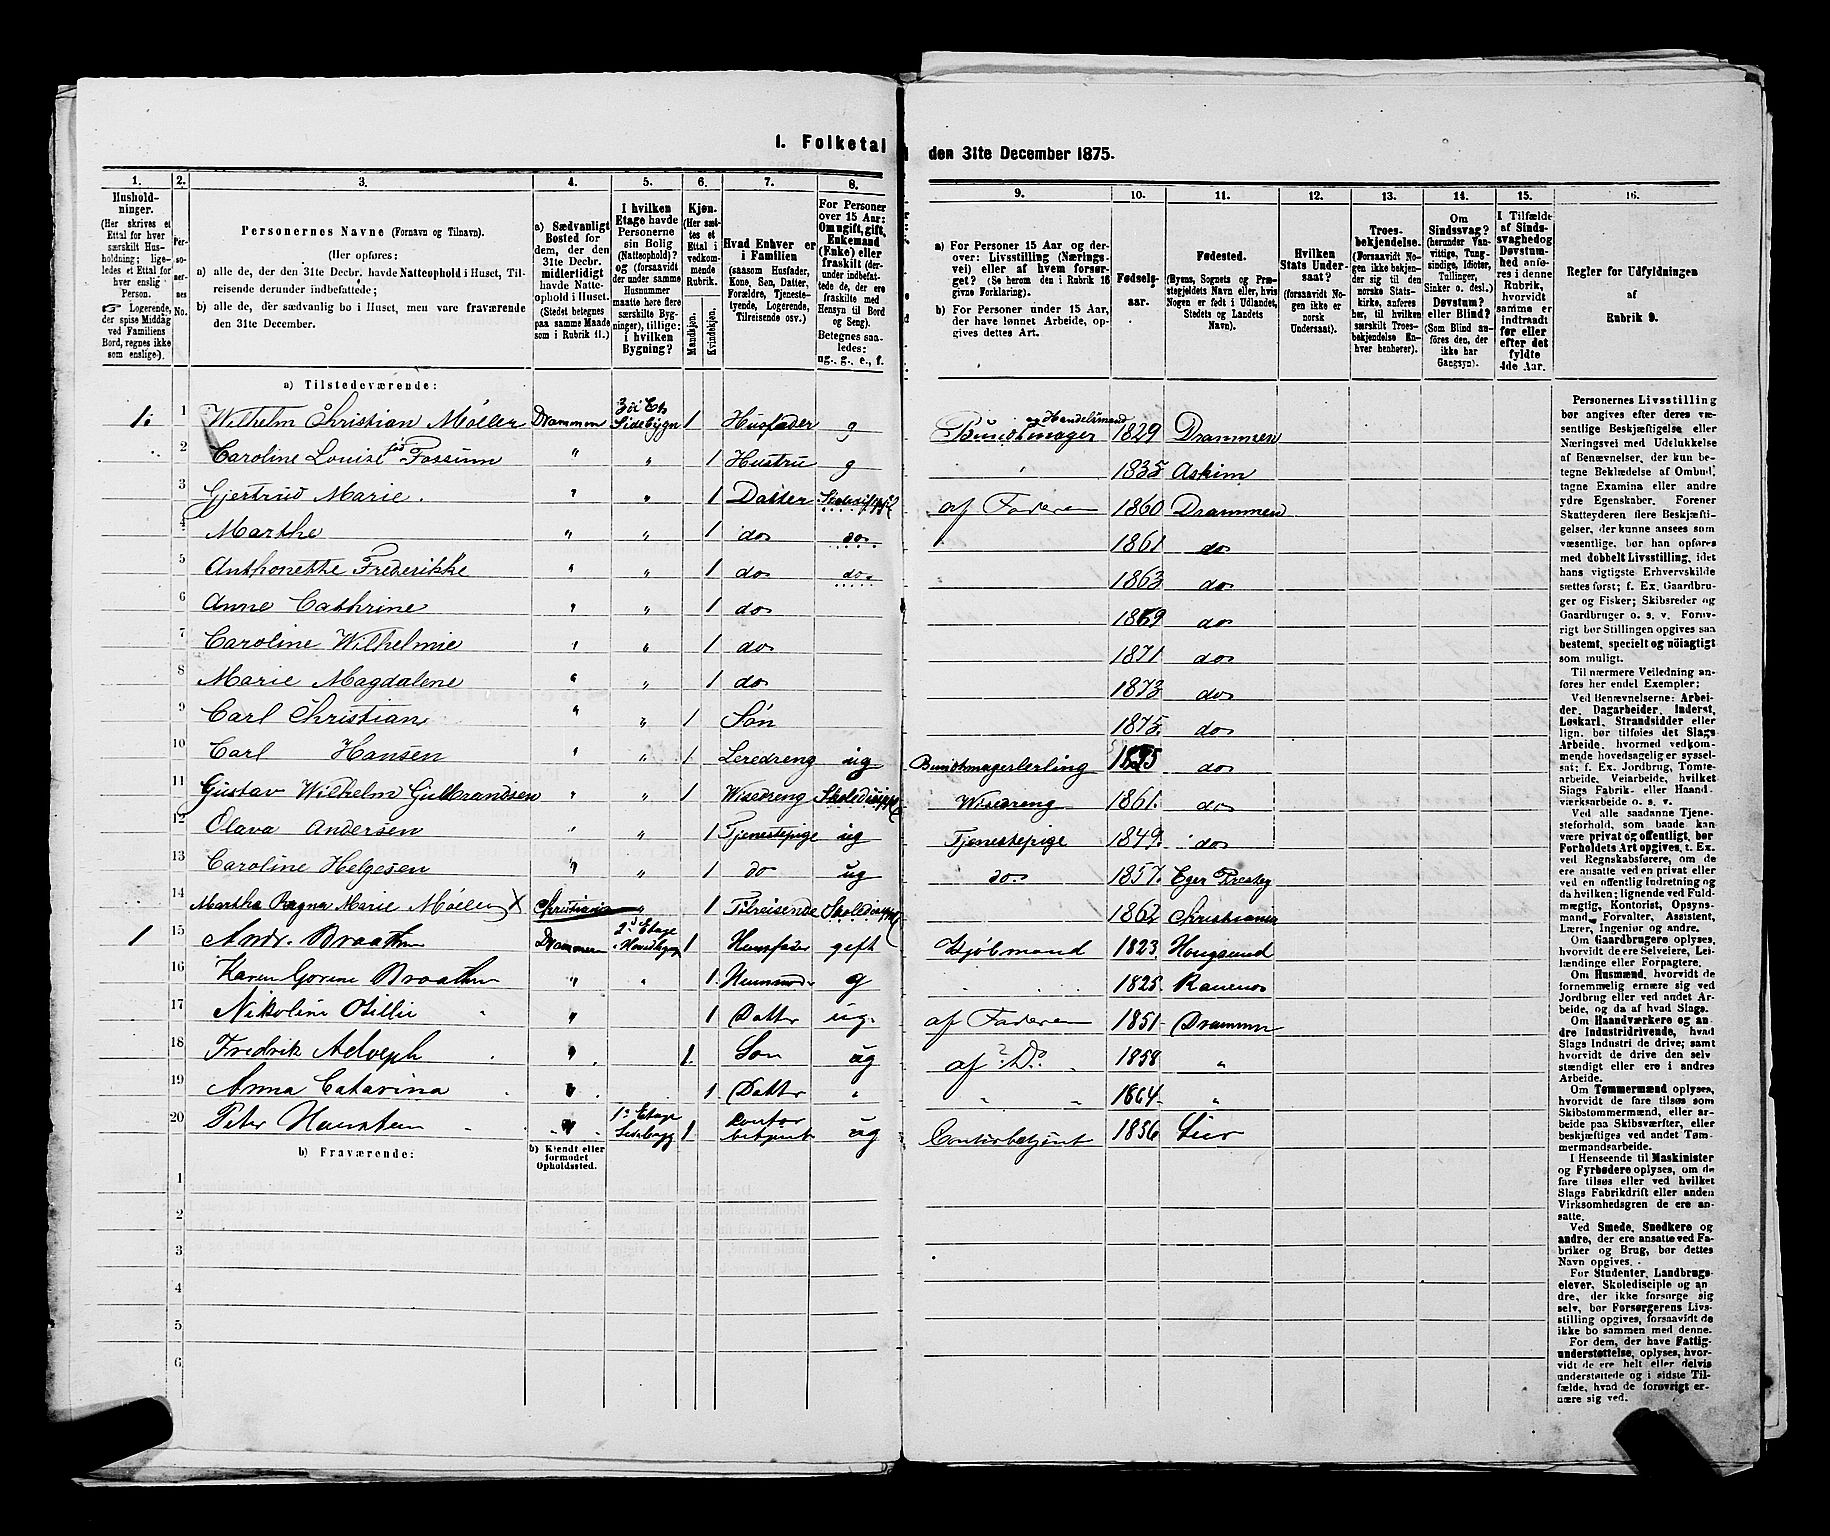 1. Folketal den 31te December 1875.
1. 2. 3. 4. 5. 6. 7. 8. 9. 10. 11. 12. 13. 14. 15. 16.
Hushold-
ninger.
(Her skrives et
Ettal for hver
særskilt Hus-
holdning; lige-
ledes et Ettal for
hver enslig
Person.
☞ Logerende,
der spise Middag
ved Familiens
Bord, regnes ikke
som enslige).
Per-
so-
ner-
nes
No.
Personernes Navne (Fornavn og Tilnavn).
(Her opføres:
a) alle de, der den 31te Decbr. havde Natteophold i Huset, Til-
reisende derunder indbefattede;
b) alle de, der sædvanlig bo i Huset, men vare fraværende
den 31te December.
a) Sædvanligt
Bosted for
dem, der den
31te Decbr.
midlertidigt
havde Natte-
ophold i Huset.
(Stedet betegnes
paa samme Maade
som i Rubrik 11.)
I hvilken
Etage havde
Personerne
sin Bolig
(Natteophold)?
og (forsaavidt
der under samme
Husnummer
maatte høre flere
særskilte Byg-
ninger), tillige:
i hvilken
Bygning?
Kjøn.
(Her sæt-
tes et
Ettal i
vedkom-
mende
Rubrik.
Mandkjøn.
Kvindekjøn.
Hvad Enhver er
i Familien
(saasom Husfader,
Kone, Søn, Datter,
Forældre, Tjeneste-
tyende, Logerende,
Tilreisende osv.)
For Personer
over 15 Aar:
Om ugift, gift,
Enkemand
(Enke) eller
fraskilt (der-
under indbefat-
tede de, der ere
fraskilte med
Hensyn til Bord
og Seng).
Betegnes saa-
ledes:
ug., g., e., f.
a) For Personer 15 Aar og der-
over: Livsstilling (Nærings-
vei) eller af hvem forsør-
get? (Se herom den i Rubrik 16
givne Forklaring).
b) For Personer under 15 Aar,
der have lønnet Arbeide, op-
gives dettes Art.
Fødsels-
aar.
Fødested.
(Byens, Sognets og Præ-
stegjeldets Navn eller, hvis
Nogen er født i Udlandet,
Stedets og Landets
Navn).
Hvilken
Stats Under-
saat?
(forsaavidt No-
gen ikke er
norsk
Undersaat).
Troes-
bekjendelse.
(Forsaavidt No-
gen ikke bekjen-
der sig til den
norske Stats-
kirke, anføres
her, til hvilken
særskilt Troes-
bekjendelse En-
hver henhører).
Om
Sindssvag?
(herunder Van-
vittige, Tung-
sindige, Idioter,
Tullinger,
Sinker o. desl.)
Døvstum?
eller Blind?
(Som Blind an-
føres den, der
ikke har
Gangsyn).
I Tilfælde
af Sinds-
svaghed og
Døvstum-
hed anfø-
res i denne
Rubrik,
hvorvidt
samme er
indtraadt
før eller
efter det
fyldte
4de Aar.
Regler for Udfyldningen
af
Rubrik 9.
a) Tilstedeværende:
1. 1 Wilhelm Christian Møeller Drammen 3die Et. Sidebygn 1 Husfader g Bundtmager og Handelsmand 1829 Drammen
2 Caroline Louise fød Fossum " " 1 Hustru g " 1835 Askim
3 Gjertrud Marie. " " 1 Datter af Faderen 1860 Drammen
4 Marthe " " 1 do do 1861 do
5 Anthonette Frederikke " " 1 do do. 1863 do
6 Anne Cathrine " " 1 do 1869 do
7 Caroline Wilhelmie " " 1 do 1871 do
8 Marie Magdalene " " 1 do 1873 do
9 Carl Christian " " 1 Søn 1875 do
10 Carl Hansen " " 1 Leredreng ug Bundtmagerlerling do
11 Gustav Wilhelm Gulbrandsen " " 1 Wisedreng Wisedreng 1861. do
12 Olava Andersen " " 1 Tjenestepige ug Tjenestepige 1849. do
13 Caroline Helgesen " " 1 do ug do. 1857. Eger Prestg
14 Martha Ragna Marie Møeller X Christiania " 1 Tilreisende 1862 Christiania
1 15 Andr. Braathen Drammen 2d Etage Hovedbygn 1 Huusfader gift Kjøbmand 1823 Hougsund
16 Karen Gorine Braathen " " 1. Huusmod. g " 1825.
17 Nikoline Otillie " 1 Datter ug. af Faderen 1851. Drammen
18 Fredrik Adolph " 1. Søn ug af ? Do 1858 "
19 Anna Catarina " 1 Datter " " " 1864. "
20 Peter Haugsten " 1ste Etage Sidebygg 1. Contorbetjent ug Contorbetjent 1856 Lier
b) Fraværende:
b) Kjendt eller
formodet
Opholdssted.
1
2
3
4
5
6
Personernes Livsstilling
bør angives efter deres væ-
sentlige Beskjæftigelse eller
Næringsvei med Udelukkelse
af Benævnelser, der kun be-
tegne Beklædelse af Ombud,
tagne Examina eller andre
ydre Egenskaber. Forener
Skatteyderen flere Beskjæfti-
gelser, der kunne ansees som
væsentlige, bør han opføres
med dobbelt Livsstilling, idet
hans vigtigste Erhvervskilde
sættes først; f. Ex. Gaardbru-
ger og Fisker; Skibsreder og
Gaardbruger o. s. v. Forøv-
rigt bør Stillingen opgives saa
bestemt, specielt og nöiagtigt
som muligt.
Til nærmere Veiledning an-
føres her endel Exempler:
Ved Benævnelserne: Arbei-
der, Dagarbeider, Inderst,
Løskarl, Strandsidder eller
lign. bør tilføies det Slags
Arbeide, hvormed vedkom-
mende hovedsagelig er syssel-
sat; f. Ex. Jordbrug, Tomte-
arbeide, Veiarbeide, hvilket
Slags Fabrik- eller Haand-
værksarbeide o. s. v.
Ved alle saadanne Tjene-
steforhold, som baade kan
være privat og offentligt, bør
Forholdets Art opgives, t. Ex.
ved Regnskabsførere, om de
ere ansatte ved en privat eller
ved en offentlig Indretning og
da hvilken; lignende ved Fuld-
mægtig, Kontorist, Opsyns-
mand, Forvalter, Assistent,
Lærer, Ingeniør og andre.
Om Gaardbrugere oplyses,
hvorvidt de ere Selveiere, Lei-
lændinge eller Forpagtere.
Om Husmænd, hvorvidt de
fornemmelig ernære sig ved
Jordbrug eller ved andet Ar-
beide, og da af hvad Slags.
Om Haandværkere og an-
dre Industridrivende, hvad
Slags Industri de drive; samt
hvorvidt de drive den selv-
stændigt eller ere i andres
Arbeide.
Om Tømmermænd oplyses,
hvorvidt de fare tilsøs som
Skibstømmermænd, eller ar-
beide paa Skibsværfter, eller
beskjæftiges ved andet Tøm-
mermandsarbeide.
I Henseende til Maskinister
og Fyrbødere oplyses, om de
fare tilsøs eller ved hvilket
Slags Fabrikdrift eller anden
Virksomhedsgren de ere an-
satte.
Ved Smede, Snedkere og
andre, der ere ansatte ved Fa-
briker og Brug, bør dettes
Navn opgives.
For Studenter, Landbrugs-
elever, Skoledisciple og an-
dre, der ikke forsørge sig
selv, bør Forsørgerens Livs-
stilling opgives, forsaavidt de
ikke bo sammen med denne.
For dem, der have Fattig-
understøttelse, oplyses, hvor-
vidt de ere helt eller delvis
understøttede og i sidste Til-
fælde, hvad de forøvrigt er-
nære sig ved.